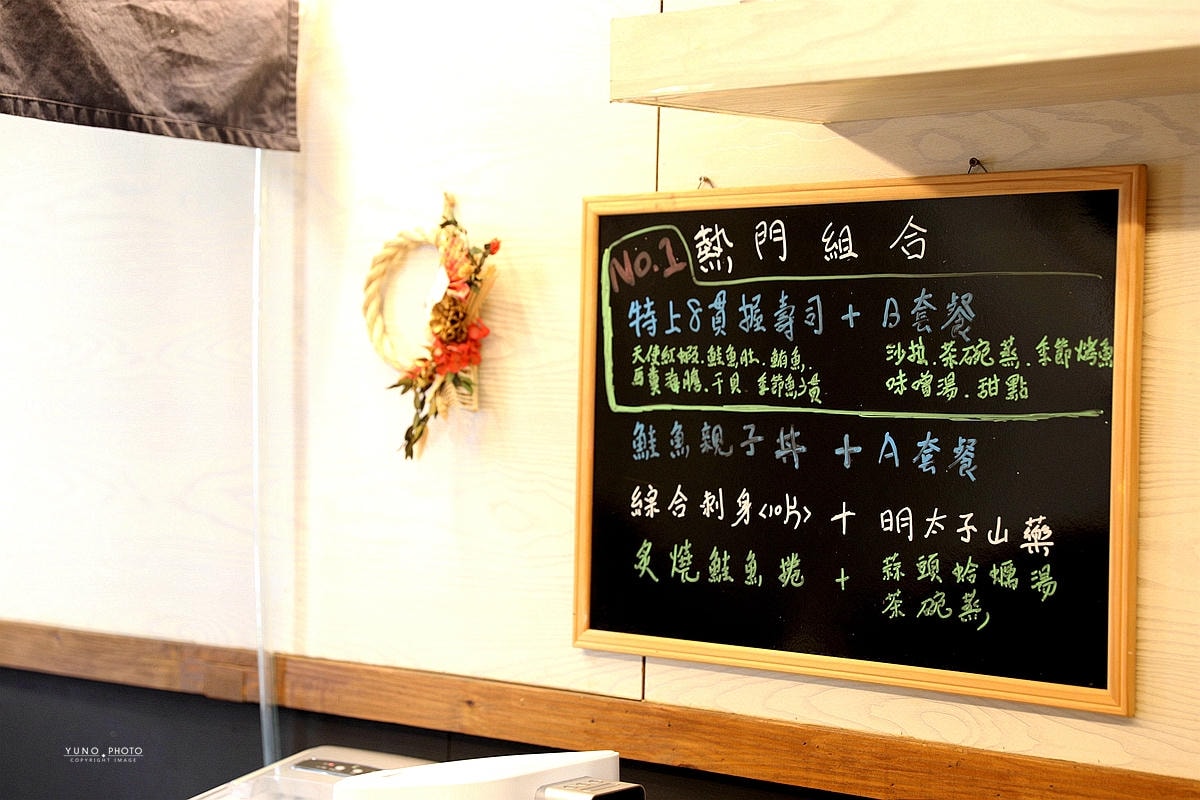 NO.1 熱門組合
特上8貫握壽司 + B套餐
天使紅蝦.鮭魚肚.鮪魚.
馬糞海膽.干貝.季節魚2貫
沙拉.茶碗蒸.季節烤魚
味噌湯.甜點
鮭魚親子丼 + A套餐
綜合刺身<10片> + 明太子山藥
炙燒鮭魚捲 + 蒜頭蛤蠣湯
茶碗蒸
YUNO PHOTO
COPYRIGHT IMAGE